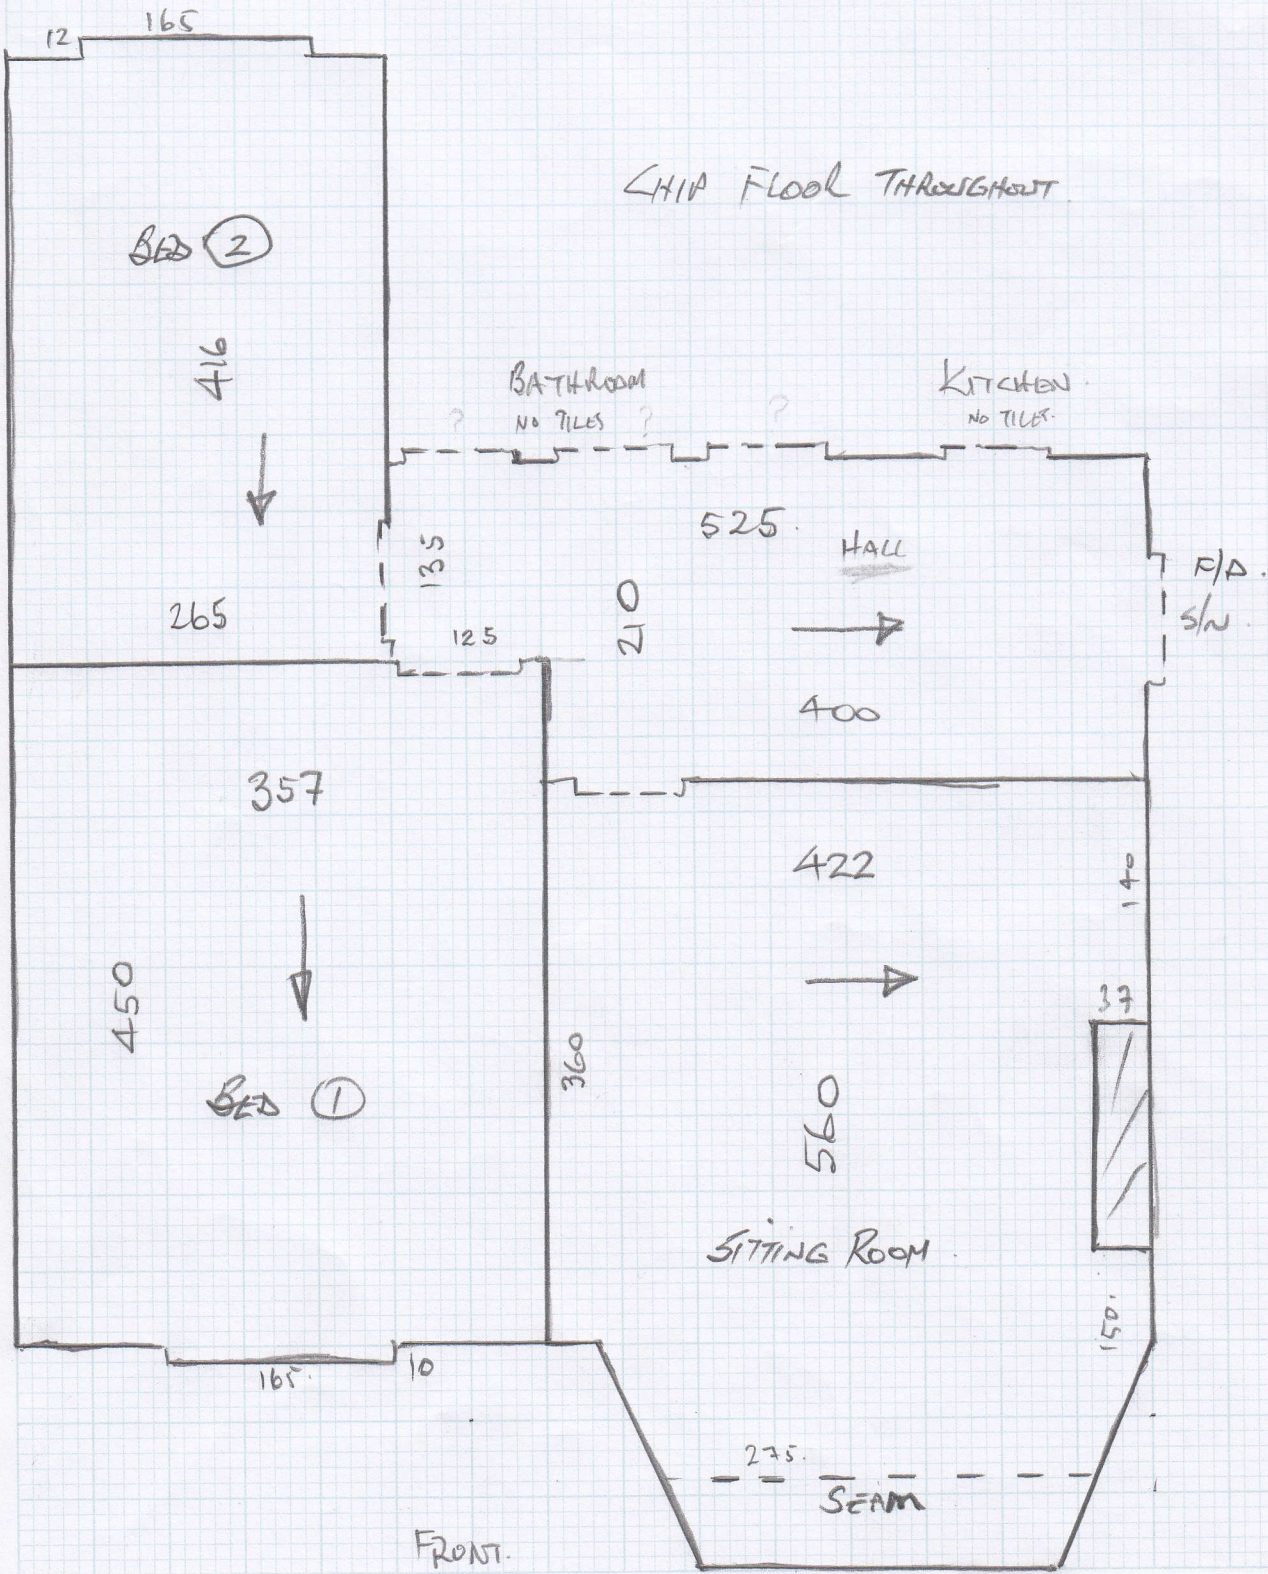 165
12
CHIP FLOOR THROUGHOUT
BED 2
416
BATHROOM
NO TILES
? ? ?
KITCHEN
NO TILES.
525.
HALL
135
F/D.
S/N.
210
265
125
400
357
422
140
450
37
360
BED 1
560
SITTING ROOM.
150.
165.
10
275.
SEAM
FRONT.